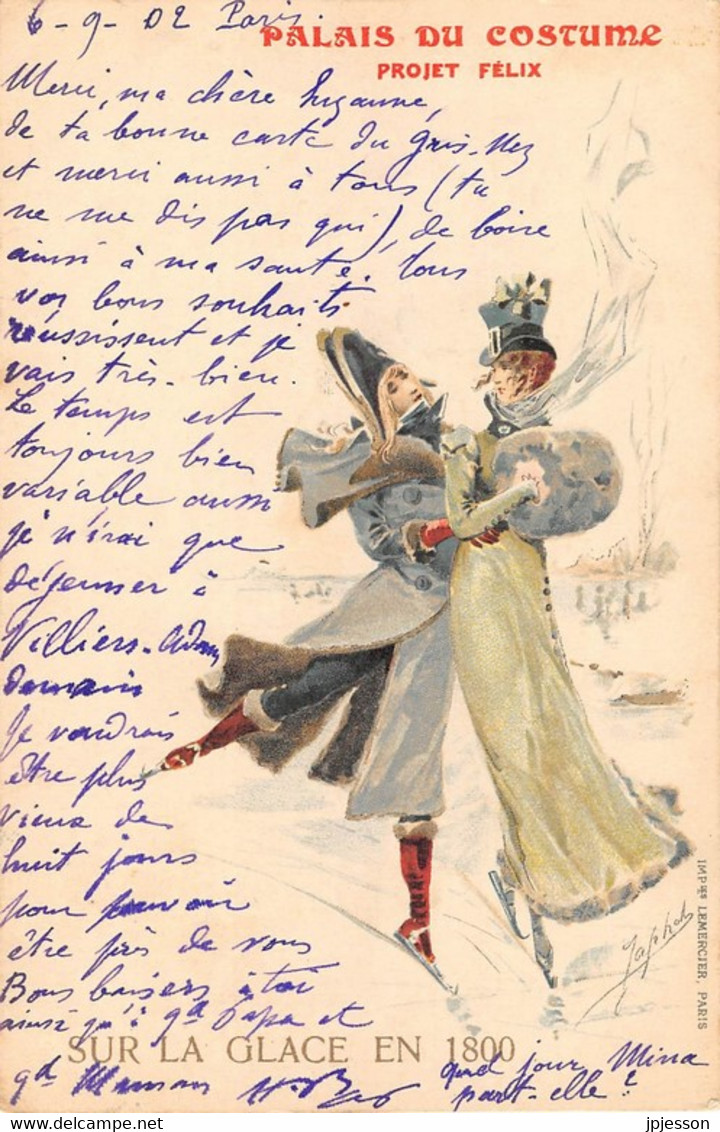 6-9-02 Paris
PALAIS DU COSTUME
PROJET FÉLIX
Merci, ma chère Suzanne,
de ta bonne carte du Gris-Nez
et merci aussi à tous (tu
ne me dis pas qui), de boire
ainsi à ma santé. Tous
vos bons souhaits
réussissent et je
vais très-bien.
Le temps est
toujours bien
variable aussi
je n'irai que
déjeuner à
Villiers-Adam
demain
Je voudrais
être plus
vieux de
huit jours
pour pouvoir
être près de vous
Bons baisers à toi
ainsi qu'à gd Papa et
gd Maman
quel jour Mina
part-elle?
SUR LA GLACE EN 1800
Japhet
IMPies LEMERCIER, PARIS
jpjesson